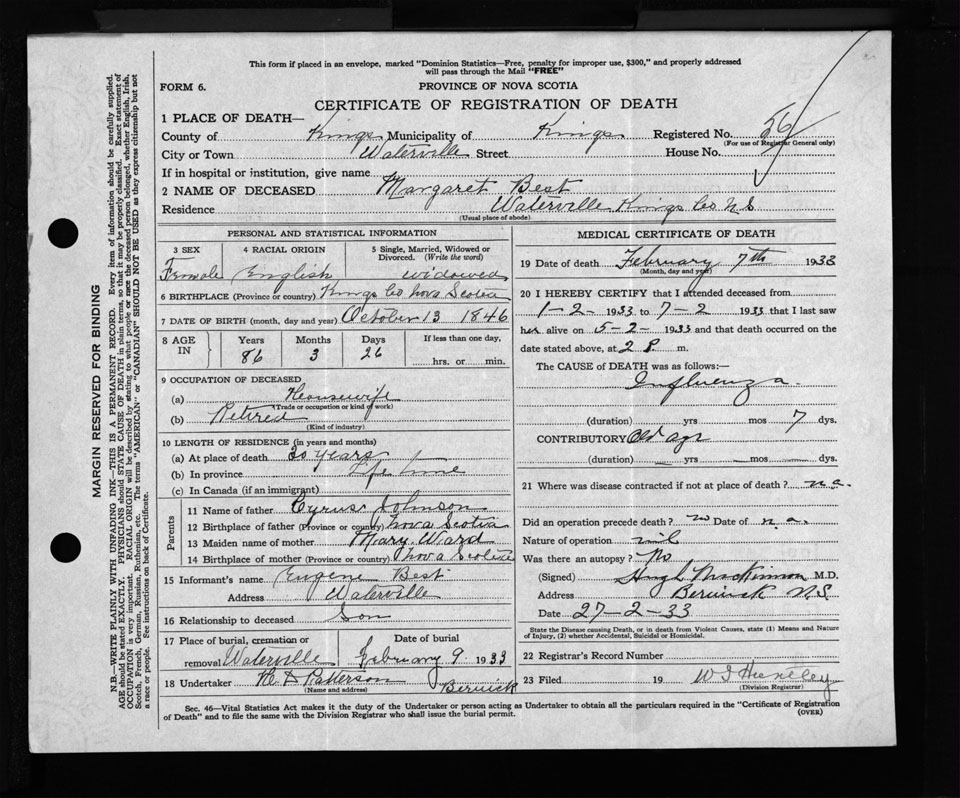 This form if placed in an envelope, marked "Dominion Statistics—Free, penalty for improper use, $300," and properly addressed
will pass through the Mail "FREE"
FORM 6.
PROVINCE OF NOVA SCOTIA
CERTIFICATE OF REGISTRATION OF DEATH
1 PLACE OF DEATH—
County of Kings Municipality of Kings Registered No. 56
(For use of Registrar General only)
City or Town Waterville Street House No.
If in hospital or institution, give name
2 NAME OF DECEASED Margaret Best
Residence Waterville Kings Co N.S
(Usual place of abode)
PERSONAL AND STATISTICAL INFORMATION
3 SEX 4 RACIAL ORIGIN 5 Single, Married, Widowed or
Divorced. (Write the word)
Female English widowed
6 BIRTHPLACE (Province or country) Kings Co Nova Scotia
7 DATE OF BIRTH (month, day and year) October 13 1846
8 AGE IN Years Months Days If less than one day,
86 3 26 hrs. or min.
9 OCCUPATION OF DECEASED
(a) Housewife
(Trade or occupation or kind of work)
(b) Retired
(Kind of industry)
10 LENGTH OF RESIDENCE (in years and months)
(a) At place of death 30 years
(b) In province Life time
(c) In Canada (if an immigrant)
Parents
11 Name of father Cyrus Johnson
12 Birthplace of father (Province or country) Nova Scotia
13 Maiden name of mother Mary Ward
14 Birthplace of mother (Province or country) Nova Scotia
15 Informant's name Eugene Best
Address Waterville
16 Relationship to deceased Son
17 Place of burial, cremation or Date of burial
removal Waterville February 9 1933
18 Undertaker Patterson Berwick
(Name and address)
MEDICAL CERTIFICATE OF DEATH
19 Date of death February 7th 1933
(Month, day and year)
20 I HEREBY CERTIFY that I attended deceased from
1-2- 1933 to 7-2 1933 that I last saw
her alive on 5-2- 1933 and that death occurred on the
date stated above, at 2 P m.
The CAUSE of DEATH was as follows:—
Influenza.
(duration) yrs mos 7 dys.
CONTRIBUTORY Old age
(duration) — yrs — mos — dys.
21 Where was disease contracted if not at place of death? n.a.
Did an operation precede death? no Date of n.a.
Nature of operation nil
Was there an autopsy? No
(Signed) Hugh MacKinnon M.D.
Address Berwick N.S.
Date 27-2-33
State the Disease causing Death, or in death from Violent Causes, state (1) Means and Nature
of Injury, (2) whether Accidental, Suicidal or Homicidal.
22 Registrar's Record Number
23 Filed 19 Huntley
(Division Registrar)
Sec. 46—Vital Statistics Act makes it the duty of the Undertaker or person acting as Undertaker to obtain all the particulars required in the "Certificate of Registration
of Death" and to file the same with the Division Registrar who shall issue the burial permit. (OVER)
MARGIN RESERVED FOR BINDING
N.B.—WRITE PLAINLY WITH UNFADING INK—THIS IS A PERMANENT RECORD. Every item of information should be carefully supplied.
AGE should be stated EXACTLY. PHYSICIANS should STATE CAUSE OF DEATH in plain terms, so that it may be properly classified. Exact statement of
OCCUPATION is very important. RACIAL ORIGIN will be described by stating to what people or race the deceased person belonged, whether English, Irish,
Scotch, French, German, Russian, Ruthenian, etc. The terms "AMERICAN" or "CANADIAN" SHOULD NOT BE USED as they express citizenship but not
a race or people. See instructions on back of Certificate.